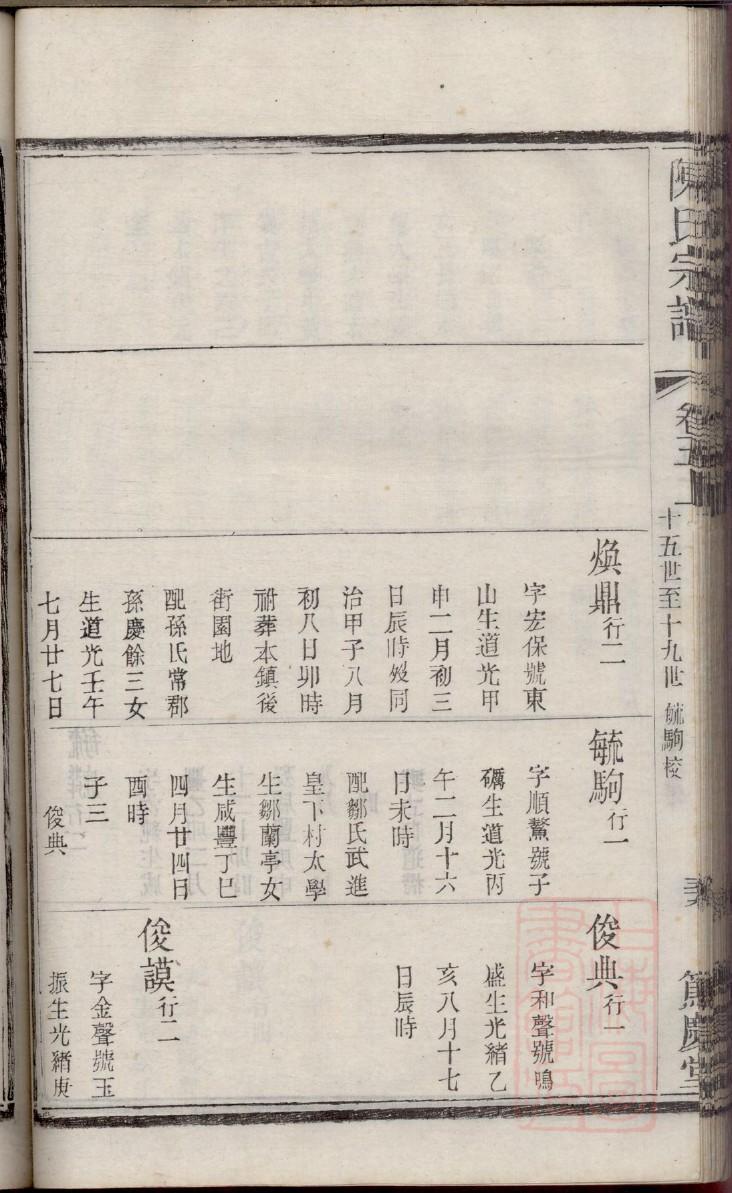 陳氏宗譜
卷五上
十五世至十九世
毓駒校
篤慶堂
煥鼎行二
字宏保號東
山生道光甲
申二月初三
日辰時歿同
治甲子八月
初八日卯時
祔葬本鎮後
街園地
配孫氏常郡
孫慶餘三女
生道光壬午
七月廿七日
毓駒行一
字順鰲號子
礪生道光丙
午二月十六
日未時
配鄒氏武進
皇下村太學
生鄒蘭亭女
生咸豐丁巳
四月廿四日
酉時
子三
俊典
俊典行一
字和聲號鳴
盛生光緒乙
亥八月十七
日辰時
俊謨行二
字金聲號玉
振生光緒庚